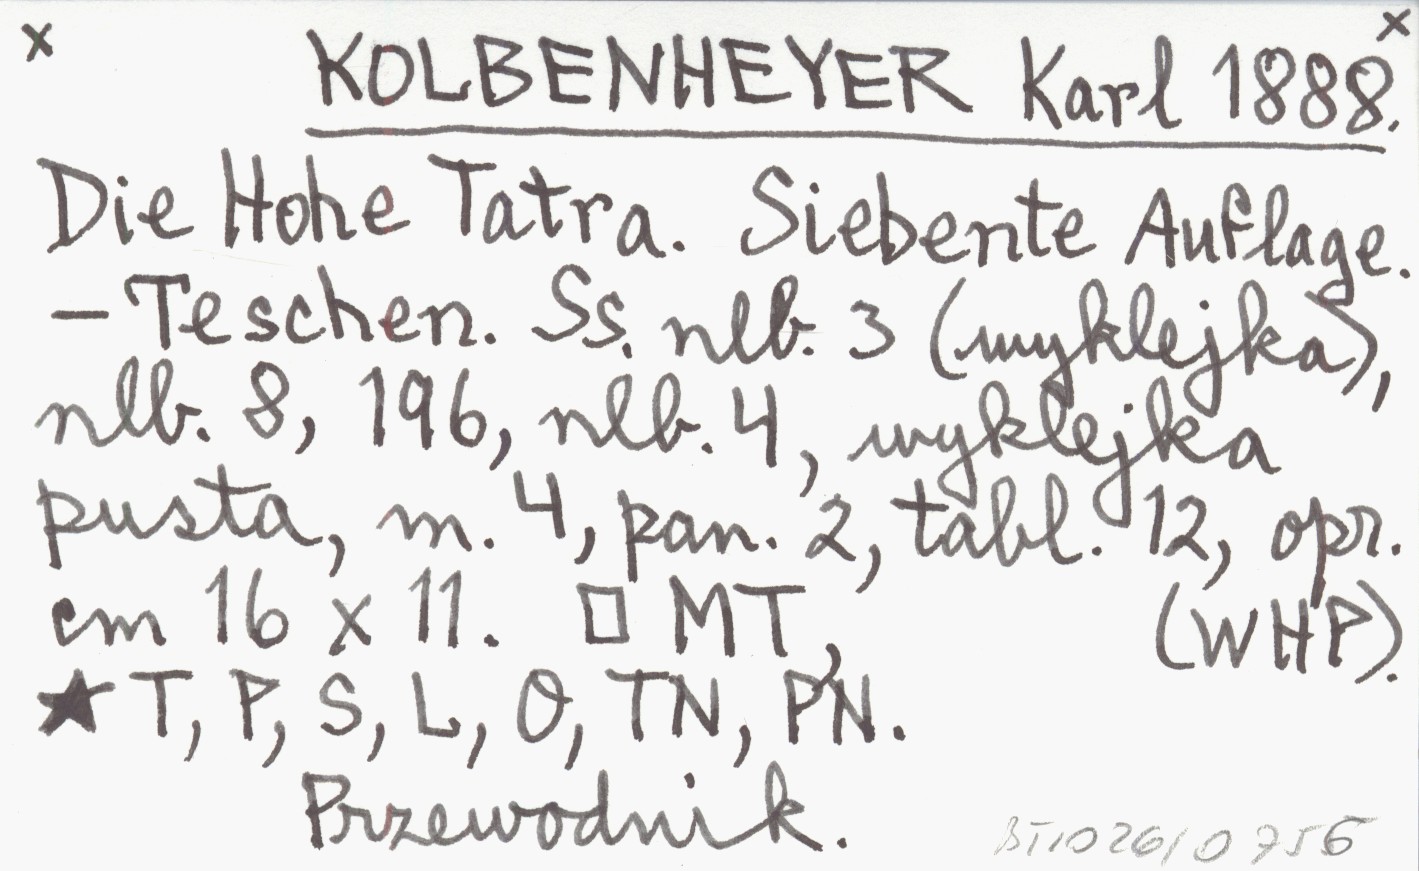 x x
KOLBENHEYER Karl 1888.
Die Hohe Tatra. Siebente Auflage.
– Teschen. Ss. nlb. 3 (wyklejka),
nlb. 8, 196, nlb. 4, wyklejka
pusta, m. 4, pan. 2, tabl. 12, opr.
cm 16 x 11. □ MT, (WHP).
★ T, P, S, L, O, TN, PN.
Przewodnik.